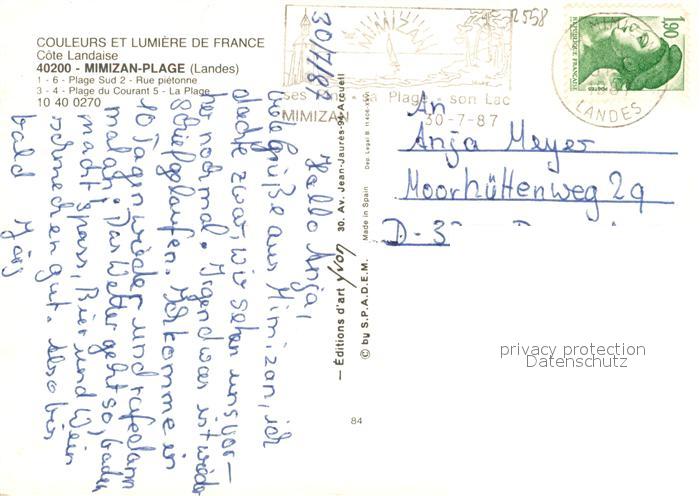 COULEURS ET LUMIÈRE DE FRANCE
Côte Landaise
40200 - MIMIZAN-PLAGE (Landes)
1 - 6 - Plage Sud 2 - Rue piétonne
3 - 4 - Plage du Courant 5 - La Plage
10 40 0270
MIMIZAN
ses - sa Plage - son Lac
MIMIZAN 30-7-87
LANDES
1,90
REPUBLIQUE FRANÇAISE
POSTES
R558
30/7/87
Hallo Anja,
viele Grüße aus Mimizan, ich
dachte zwar, wir sehen uns vor-
her nochmal. Irgendwas ist wieder
schiefgelaufen. Ich komme in
10 Tagen wieder und rufe dann
mal an. Das Wetter geht so, baden
macht spass, Bier und Wein
schmecken gut. Also bis
bald Jörg
— Éditions d'art yvon 30, Av. Jean-Jaurès-94 Arcueil
© by S.P.A.D.E.M. Made in Spain Dep. Legal B.
84
An
Anja Meyer
Moorhüttenweg 2a
D-3
privacy protection
Datenschutz